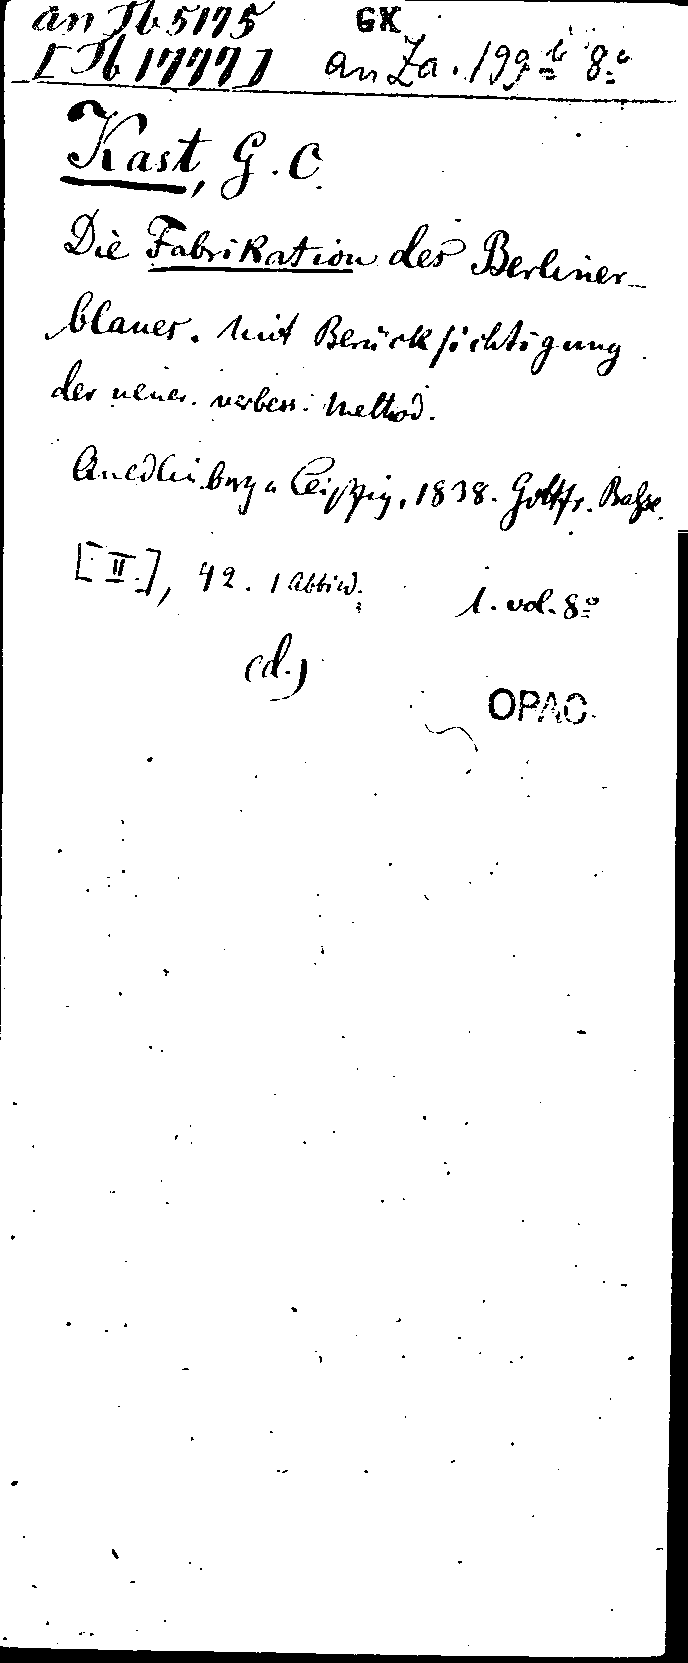 an Tb 5175 GK
[Tb 17777] an Za. 199 b 8o
Kast, G. C.
Die Fabrikation des Berliner-
blaues. Mit Berücksichtigung
der neuer. verbess. Method.
Quedlinburg u. Leipzig, 1838. Gottfr. Basse.
[II], 42. 1 Abbild. 1. vol. 8o
(d.)
OPAC